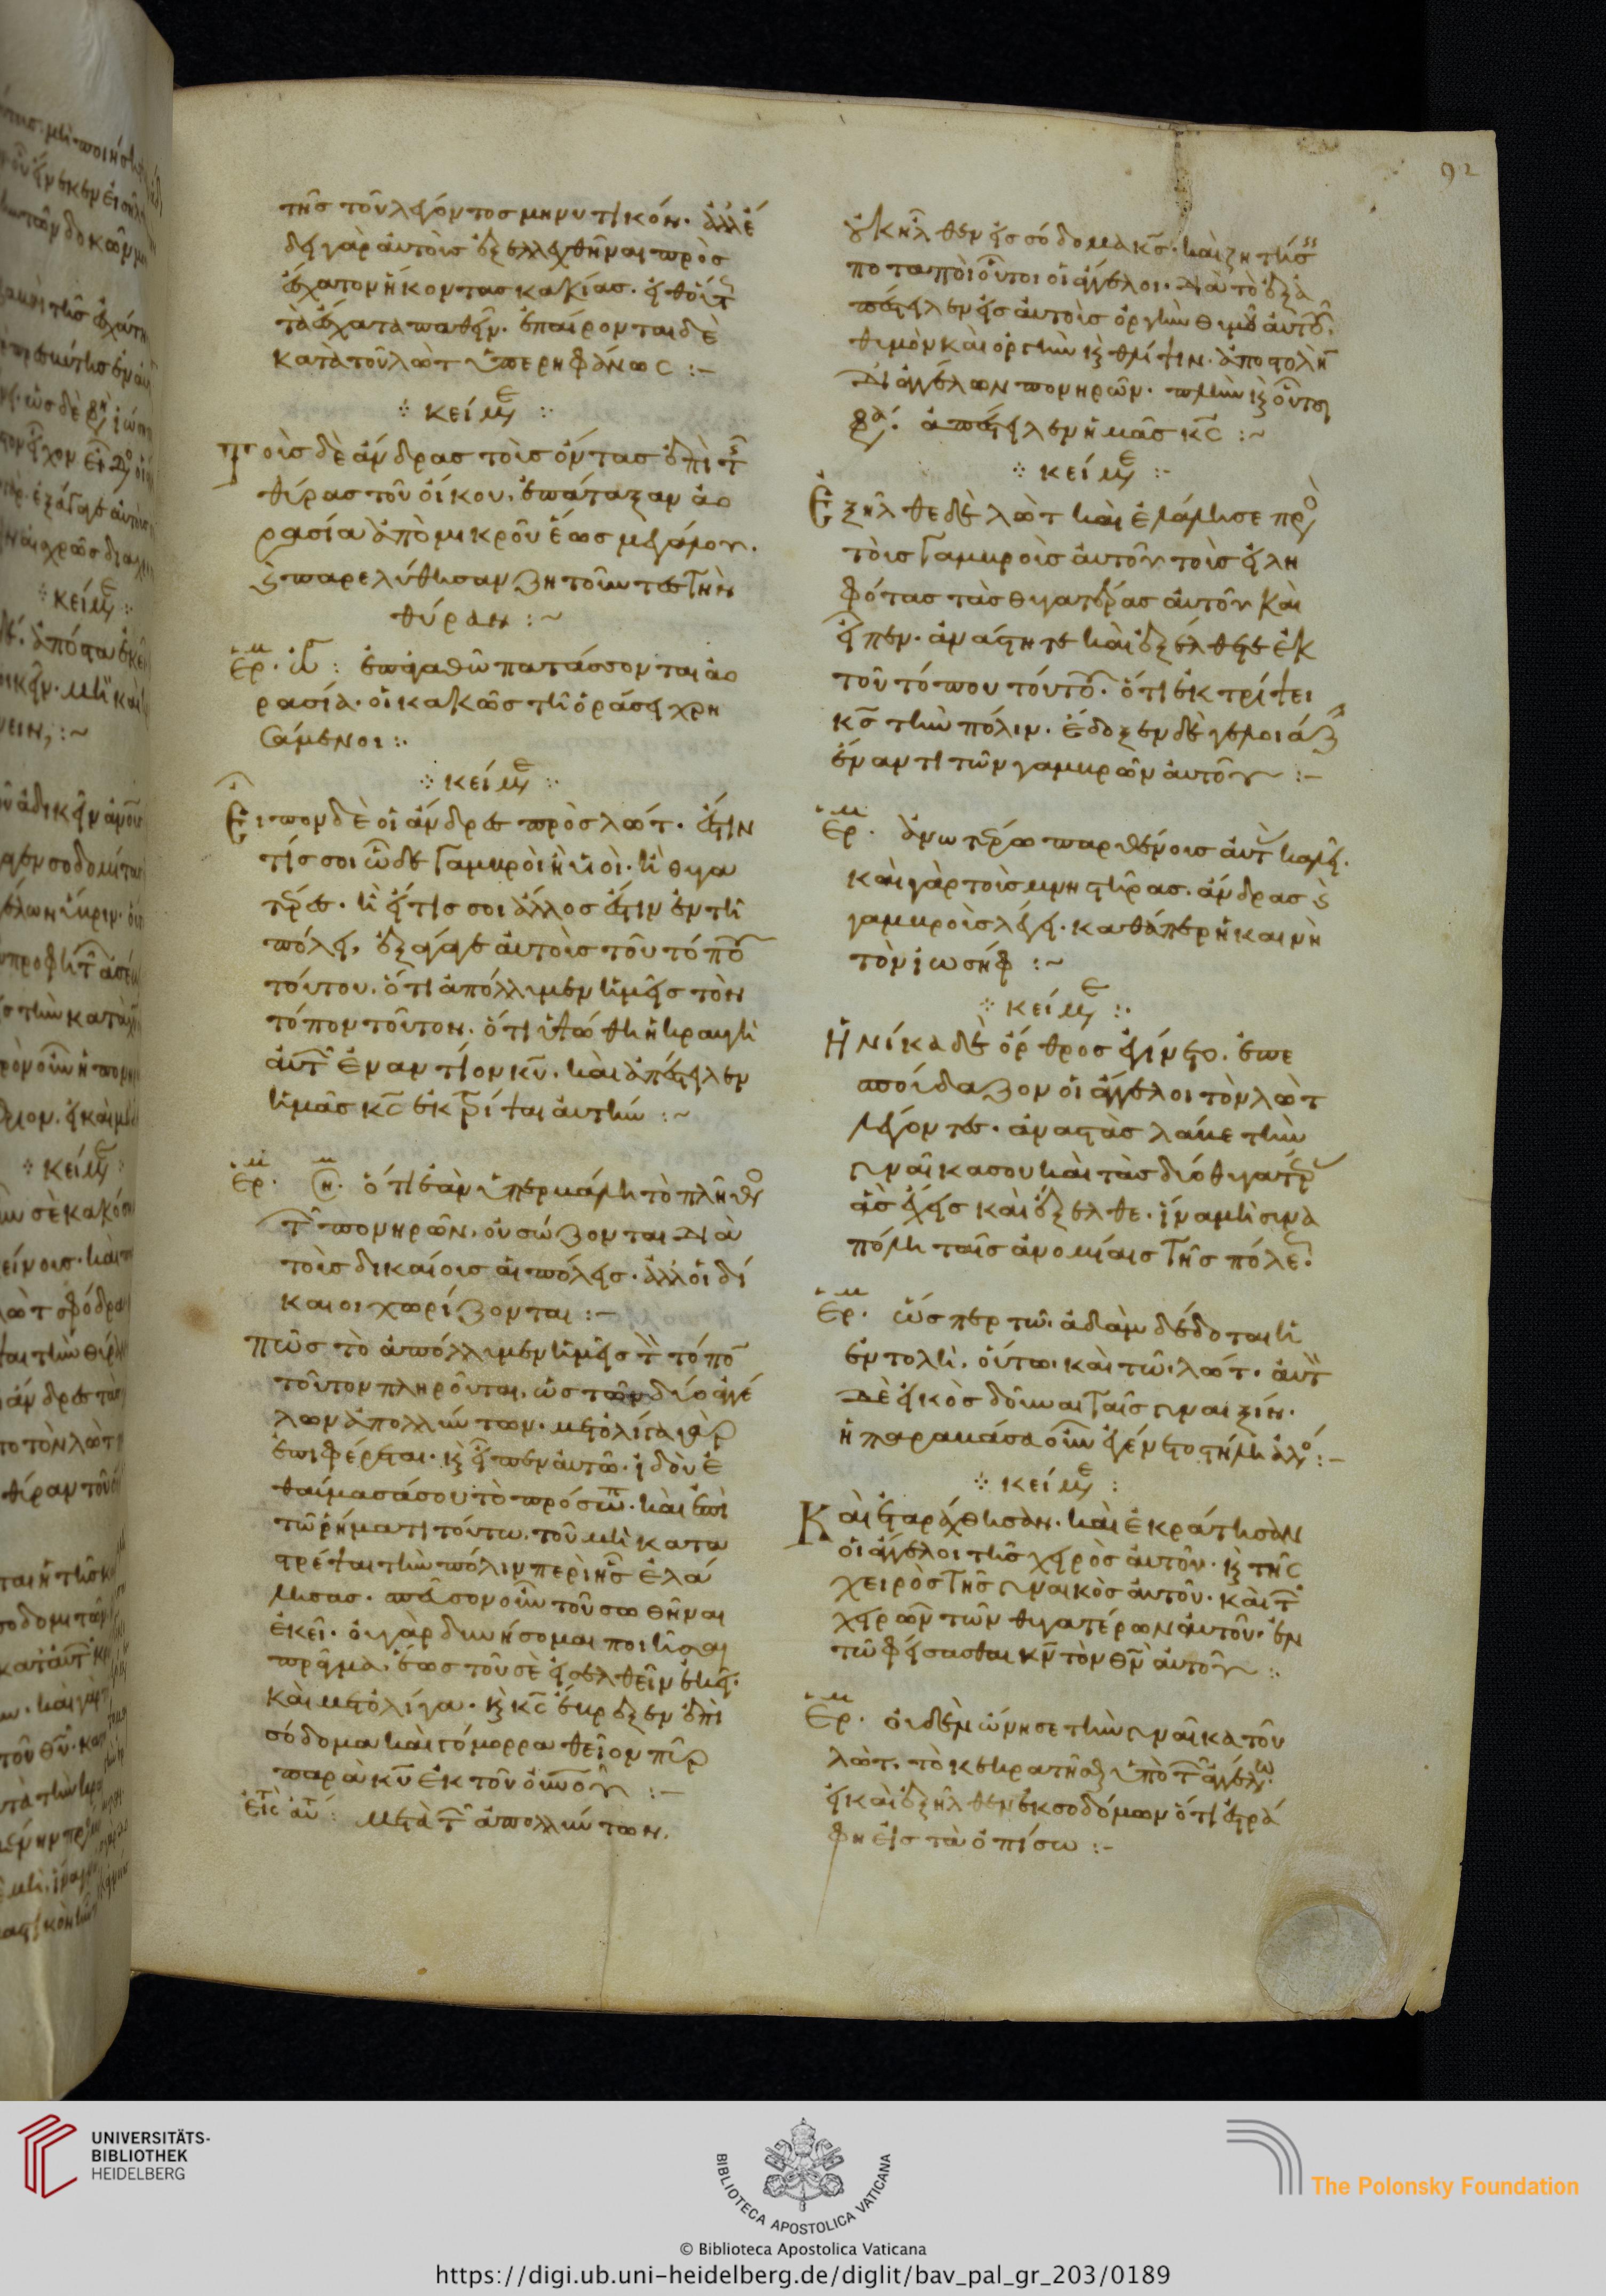 92
τῆς τοῦ λέγοντος μηνυτικόν. ἀλλ' ἔ
δει γὰρ αὐτοὺς ἐξελεγχθῆναι πρὸς
ἔσχατον ἥκοντας κακίας.
τὰ ἔσχατα παθεῖν. ἐπαίρονται δὲ
κατὰ τοῦ λὼτ ὑπερηφάνως :-
κείμε
Τοὺς δὲ ἄνδρας τοὺς ὄντας ἐπὶ τ
θύρας τοῦ οἴκου, ἐπάταξαν ἀο
ρασία ἀπὸ μικροῦ ἕως μεγάλου.
ϛ παρελύθησαν ζητοῦντες τὴν
θύραν :~
ερμ. πατάσσονται ἀο
ρασία. οἱ κακῶς τῆ ὁράσει χρη
σάμενοι :.
κείμε
Εἶπον δὲ οἱ ἄνδρες πρὸς λώτ. ἔστιν
τίς σοι ὧδε γαμβροὶ ἢ υἱοὶ. ἢ θυγα
τέρες. ἢ εἴ τις σοι ἄλλος ἔστιν ἐν τῆ
πόλει, ἐξάγαγε αὐτοὺς τοῦ τόπου
τούτου. ὅτι ἀπόλλυμεν ἡμεῖς τὸν
τόπον τοῦτον. ὅτι ὑψώθη ἡ κραυγὴ
αὐτ ἐναντίον κυ. καὶ ἀπέστειλεν
ἡμᾶς κς ἐκτρίψαι αὐτήν :~
ερμ. ὅτι ἐὰν ὑπερβάλη τὸ πλῆθος
τ πονηρῶν, οὐ σώζονται διὰ
τοὺς δικαίους αἱ πόλεις. ἀλλ' οἱ δί
καιοι χωρίζονται :-
πῶς τὸ ἀπόλλυμεν ἡμεῖς τ τόπον
τοῦτον πληροῦται, ὡς τῶν δύο ἀγγέ
λων ἀπολλύντων. μετ' ὀλίγα γὰρ
ἐπιφέρεται. κ εἶπεν αὐτῶ. ἰδοὺ ἐ
θαύμασά σου τὸ πρόσωπ. καὶ ἐπὶ
τῶ ῥήματι τούτω, τοῦ μὴ κατα
στρέψαι τὴν πόλιν περὶ ἧς ἐλά
λησας. σπεῦσον οὖν τοῦ σωθῆναι
ἐκεῖ. οὐ γὰρ δυνήσομαι ποιῆσαι
πρᾶγμα, ἕως τοῦ σὲ εἰσελθεῖν ἐκεῖ.
καὶ μετ' ὀλίγα. κ κς ἔβρεξεν ἐπὶ
σόδομα καὶ γόμορρα θεῖον πῦρ
παρὰ κυ ἐκ τοῦ οὐνοῦ :-
μετὰ τ ἀπολλύντων.
οὐκ ἦλθεν εἰς σόδομα κς. καὶ ζητήσ
ποταποὶ οὗτοι οἱ ἄγγελοι. διὰ τὸ ἐξα
πέστειλεν εἰς αὐτοὺς ὀργὴν θυμοῦ αὐτοῦ.
θυμὸν καὶ ὀργὴν κ θλίψιν. ἀποστολὴν
δι' ἀγγέλων πονηρῶν. πλὴν κ οὗτοι
ἀπέστειλεν ἡμᾶς κς :~
κείμε
Ἐξῆλθε δὲ λὼτ καὶ ἐλάλησε πρὸ
τοὺς γαμβροὺς αὐτοῦ τοὺς εἰλη
φότας τὰς θυγατέρας αὐτοῦ καὶ
εἶπεν. ἀνάστητε καὶ ἐξέλθετε ἐκ
τοῦ τόπου τούτου. ὅτι ἐκτρίψει
κς τὴν πόλιν. ἔδοξεν δὲ γελοιάζ
ἐναντι τῶν γαμβρῶν αὐτοῦ :-
ερμ. ἀνωτέρω παρθένους αὐτ καλεῖ.
καὶ γὰρ τοὺς μνηστῆρας. ἄνδρας ϛ
γαμβροὺς λέγει. καθάπερ ἡ καινὴ
τὸν ἰωσήφ :~
κείμε
Ἡνίκα δὲ ὄρθρος ἐγίνετο. ἐπε
σπούδαζον οἱ ἄγγελοι τὸν λὼτ
λέγοντες. ἀναστὰς λάβε τὴν
γυναῖκά σου καὶ τὰς δύο θυγατέρ
ἃς ἔχεις καὶ ἔξελθε. ἵνα μὴ συνα
πόλη ταῖς ἀνομίαις τῆς πόλε.
ερμ. ὥσπερ τῶ ἀδὰμ δέδοται ἡ
ἐντολὴ, οὕτω καὶ τῶ λώτ. αὐτ
δὲ εἰκὸς δοῦναι ταῖς γυναιξίν.
ἡ παραβᾶσα οὖν ἐγένετο στήλη ἁλὸ :-
κείμε
Καὶ ἐταράχθησαν. καὶ ἐκράτησαν
οἱ ἄγγελοι τῆς χειρὸς αὐτοῦ. κ τῆς
χειρὸς τῆς γυναικὸς αὐτοῦ. καὶ τ
χειρῶν τῶν θυγατέρων αὐτοῦ. ἐν
τῶ φείσασθαι κν τὸν θν αὐτοῦ :.
ερμ. οὐδὲν ὤνησε τὴν γυναῖκα τοῦ
λώτ, τὸ κεκρατῆσθαι ὑπὸ τ ἀγγέλω.
εἰ καὶ ἐξῆλθεν ἐκ σοδόμων ὅτι ἐστρά
φη εἰς τὰ ὀπίσω :-
UNIVERSITÄTS-
BIBLIOTHEK
HEIDELBERG
BIBLIOTECA APOSTOLICA VATICANA
The Polonsky Foundation
© Biblioteca Apostolica Vaticana
https://digi.ub.uni-heidelberg.de/diglit/bav_pal_gr_203/0189